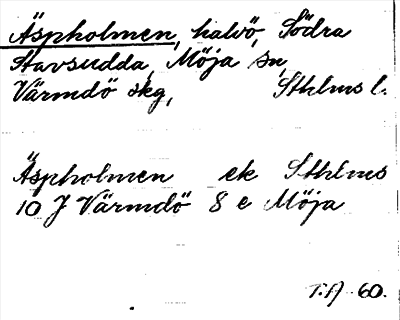 Äspholmen, halvö, Södra
Stavsudda, Möja sn,
Värmdö skg, Sthlms l.
Äspholmen ek Sthlms
10 J Värmdö 8 e Möja
T.A 60.